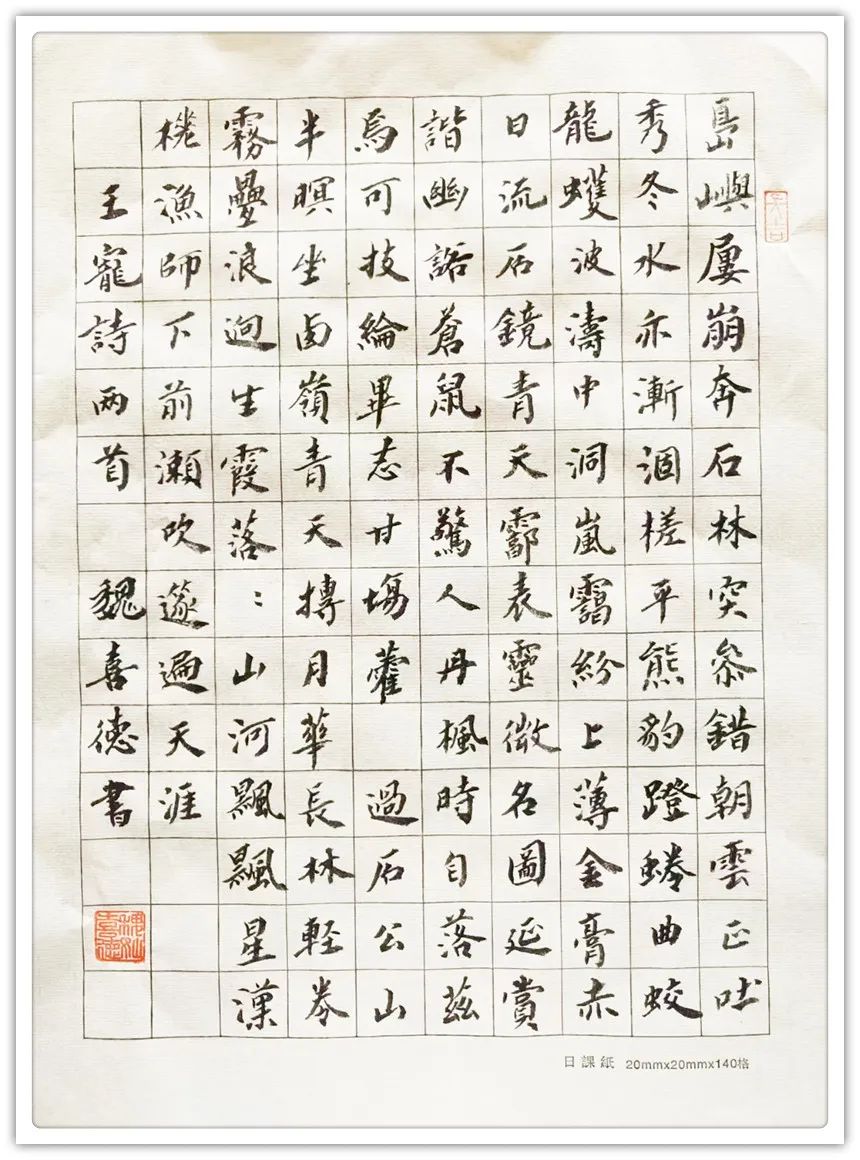 島嶼屢崩奔石林突參錯朝雲正吐
秀冬水亦漸涸槎平熊豹蹬蜷曲蛟
龍蠖波濤中洞嵐靄紛上薄金膏赤
日流石鏡青天霩表靈微名圖延賞
諧幽諾蒼鼠不驚人丹楓時自落茲
焉可投綸畢志甘塲藿 過石公山
半暝坐函嶺青天摶月華長林輕岑
霧疊浪迥生霞落:山河飄飄星漢
槎漁師下前瀨吹邃遍天涯
王寵詩兩首 魏喜德書
日課紙 20mmx20mmx140格